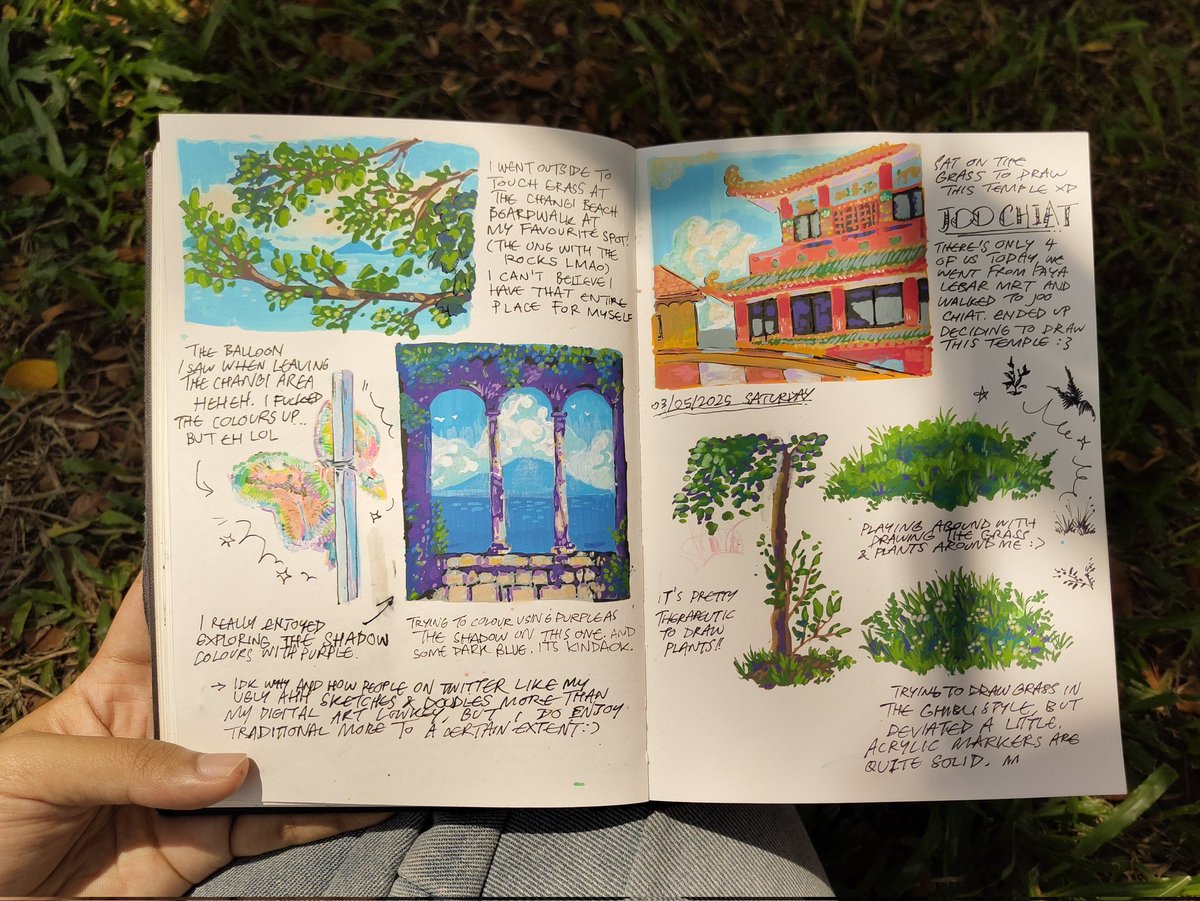 I WENT OUTSIDE TO
TOUCH GRASS AT
THE CHANGI BEACH
BOARDWALK AT
MY FAVOURITE SPOT!
(THE ONE WITH THE
ROCKS LMAO)
I CAN'T BELIEVE I
HAVE THAT ENTIRE
PLACE FOR MYSELF
THE BALLOON
I SAW WHEN LEAVING
THE CHANGI AREA
HEHEH. I FUCKED
THE COLOURS UP...
BUT EH LOL
I REALLY ENJOYED
EXPLORING THE SHADOW
COLOURS WITH PURPLE.
TRYING TO COLOUR USING PURPLE AS
THE SHADOW ON THIS ONE. AND
SOME DARK BLUE. ITS KINDA OK.
→ IDK WHY AND HOW PEOPLE ON TWITTER LIKE MY
UGLY AHH SKETCHES & DOODLES MORE THAN
MY DIGITAL ART LOWKEY, BUT I DO ENJOY
TRADITIONAL MORE TO A CERTAIN EXTENT :)
SAT ON THE
GRASS TO DRAW
THIS TEMPLE XD
JOO CHIAT
THERE'S ONLY 4
OF US TODAY, WE
WENT FROM PAYA
LEBAR MRT AND
WALKED TO JOO
CHIAT. ENDED UP
DECIDING TO DRAW
THIS TEMPLE :3
03/05/2025 SATURDAY
PLAYING AROUND WITH
DRAWING THE GRASS
& PLANTS AROUND ME :>
IT'S PRETTY
THERAPEUTIC
TO DRAW
PLANTS!!
TRYING TO DRAW GRASS IN
THE GHIBLI STYLE, BUT
DEVIATED A LITTLE.
ACRYLIC MARKERS ARE
QUITE SOLID.